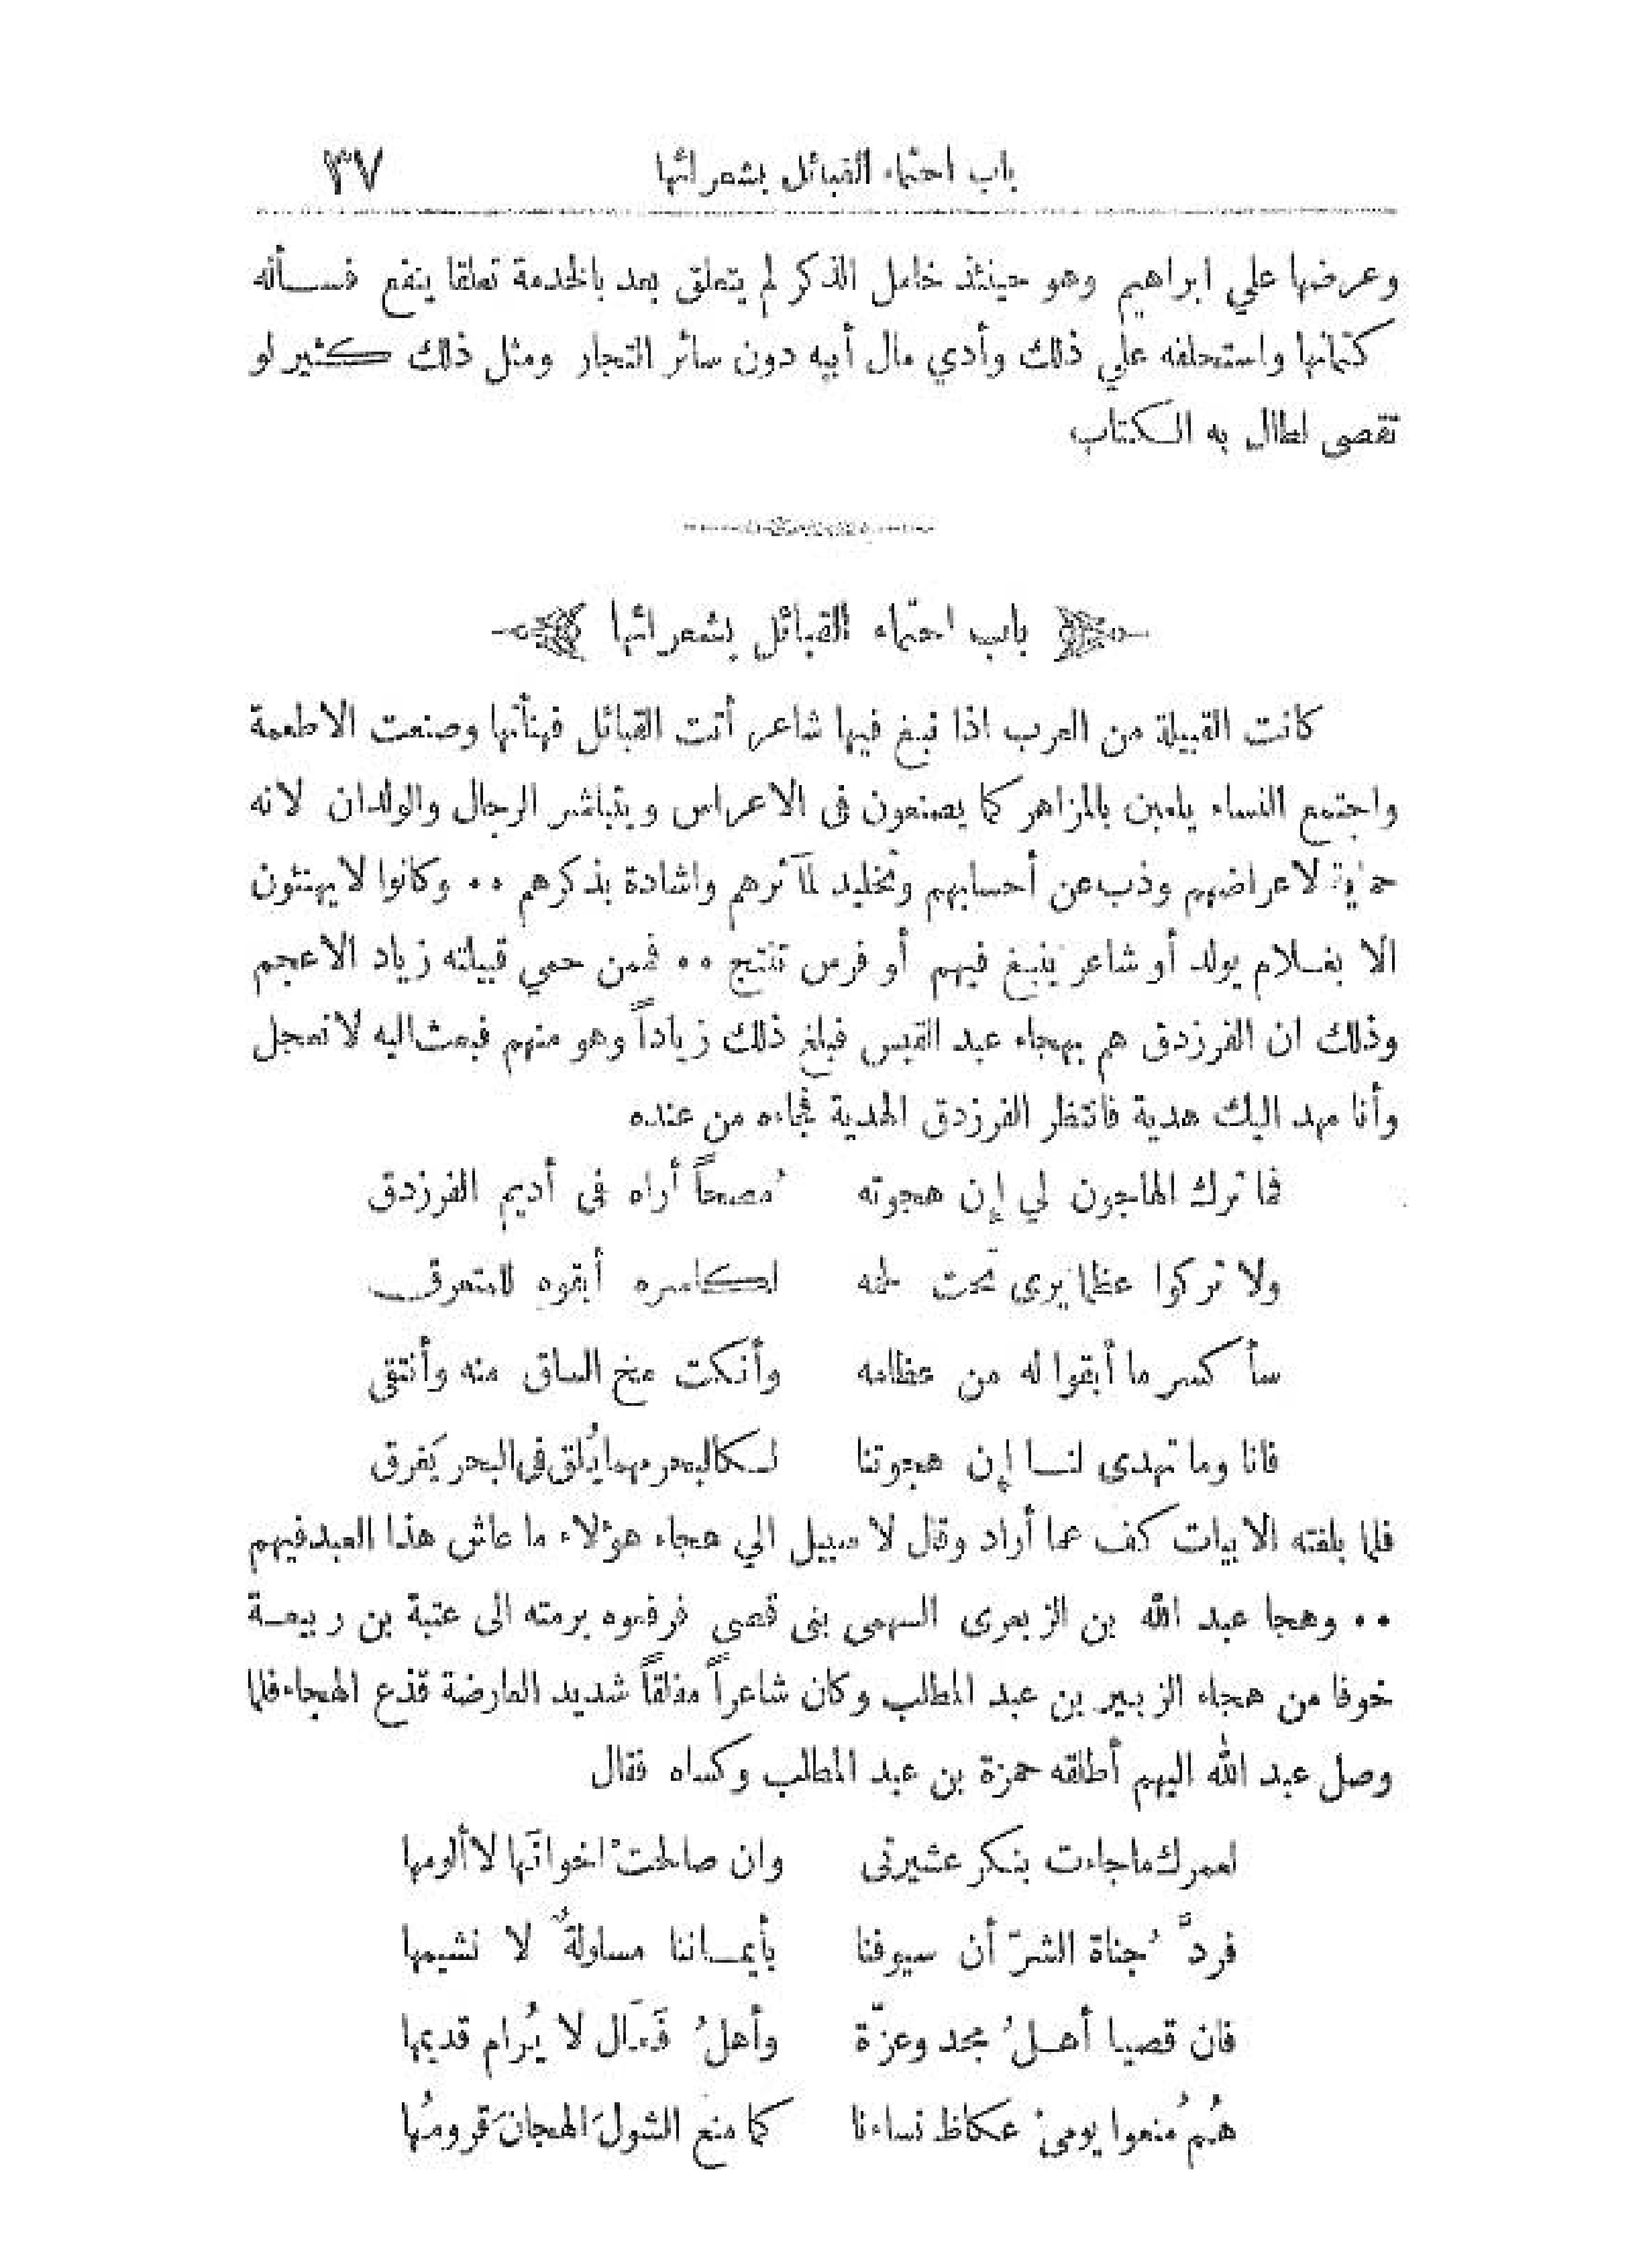 باب احتماء القبائل بشعرائها ٣٧
وعرضها علي ابراهيم وهو حينئذ خامل الذكر لم يتعلق بعد بالخدمة تعلقا ينفع فسأله
كتمانها واستحلفه علي ذلك وأدي مال أبيه دون سائر التجار ومثل ذلك كثير لو
تقصى لطال به الكتاب
باب احتماء القبائل بشعرائها
كانت القبيلة من العرب اذا نبغ فيها شاعر أتت القبائل فهنأتها وصنعت الاطعمة
واجتمع النساء يلعبن بالمزاهر كما يصنعون فى الاعراس ويتباشر الرجال والولدان لانه
حماية لاعراضهم وذب عن أحسابهم وتخليد لمآثرهم واشادة بذكرهم ٠٠ وكانوا لا يهنئون
الا بغلام يولد أو شاعر ينبغ فيهم أو فرس تنتج ٠٠ فممن حمي قبيلته زياد الاعجم
وذلك ان الفرزدق هم بهجاء عبد القيس فبلغ ذلك زياداً وهو منهم فبعث اليه لا تعجل
وأنا مهد اليك هدية فانتظر الفرزدق الهدية فجاءه من عنده
فما ترك الهاجون لي إن هجوته مُصححاً أراه فى أديم الفرزدق
ولا تركوا عظما يرى تحت لحمه لكاسره أبقوه للمتعرق
سأكسر ما أبقوا له من عظامه وأنكت مخ الساق منه وأنتقى
فانا وما تهدى لنا إن هجوتنا لكالبحر مهما يُلق فى البحر يَغرق
فلما بلغته الابيات كف عما أراد وقال لا سبيل الي هجاء هؤلاء ما عاش هذا العبد فيهم
٠٠ وهجا عبد الله بن الزبعرى السهمى بنى قصي فرفعوه برمته الى عتبة بن ربيعة
خوفا من هجاء الزبير بن عبد المطلب وكان شاعراً مفلقاً شديد العارضة قذع الهجاء فلما
وصل عبد الله اليهم أطلقه حمزة بن عبد المطلب وكساه فقال
لعمرك ما جاءت بنكر عشيرتى وان صالحتْ اخوانَها لا ألومها
فردَّ جُناة الشرّ أن سيوفنا بأيماننا مسلولةٌ لا نشيمها
فان قصيا أهلُ مجد وعزّة وأهلُ فَعَال لا يُرام قديمها
هُمُ مُنعوا يومىْ عكاظ نساءنا كما منع الشولَ الهجانَ قرومُها